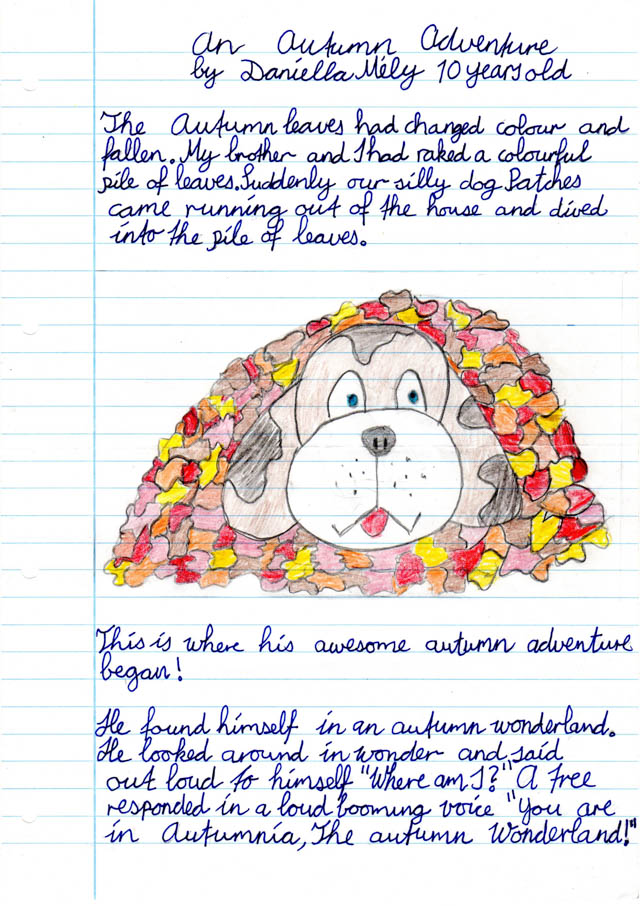 An Autumn Adventure
by Daniella Mély 10 years old
The Autumn leaves had changed colour and
fallen. My brother and I had raked a colourful
pile of leaves. Suddenly our silly dog Patches
came running out of the house and dived
into the pile of leaves.
This is where his awesome autumn adventure
began!
He found himself in an autumn wonderland.
He looked around in wonder and said
out loud to himself "Where am I?" A tree
responded in a loud booming voice "You are
in Autumnia, The autumn Wonderland!"